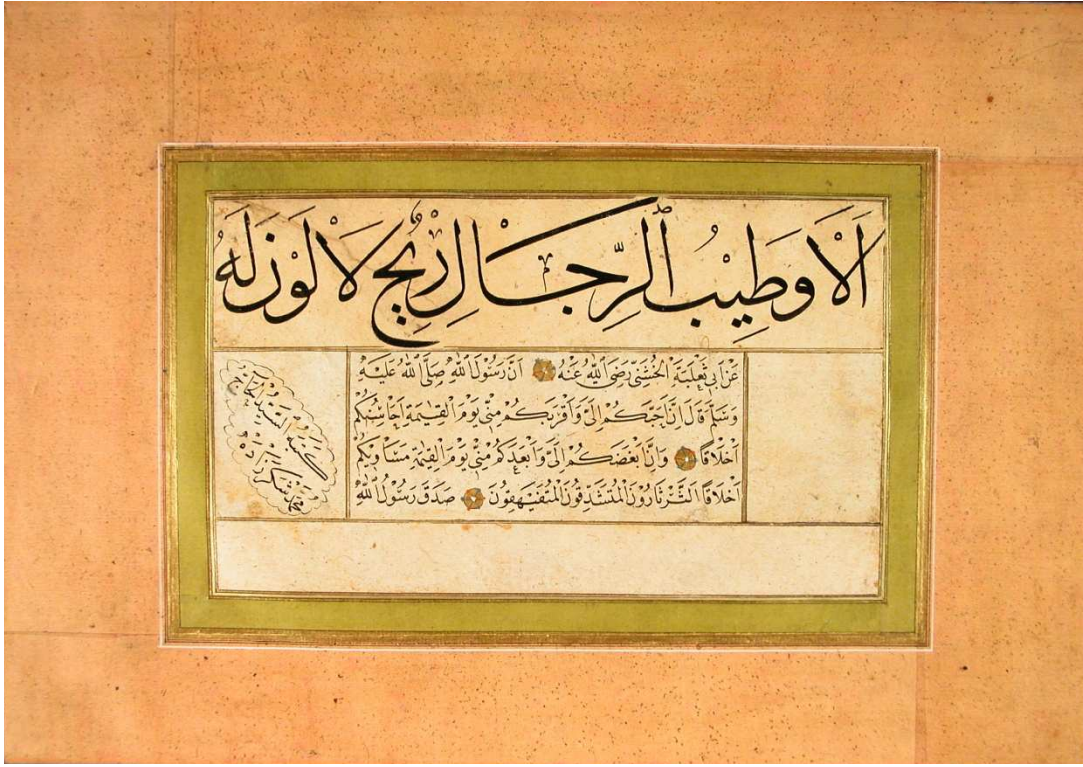 أَلَا وَطِيبُ الرِّجَالِ رِيحٌ لَا لَوْنَ لَهُ
عَنْ أَبِي ثَعْلَبَةَ الْخُشَنِيِّ رَضِيَ اللّٰهُ عَنْهُ أَنَّ رَسُولَ اللّٰهِ صَلَّى اللّٰهُ عَلَيْهِ
وَسَلَّمَ قَالَ إِنَّ أَحَبَّكُمْ إِلَيَّ وَأَقْرَبَكُمْ مِنِّي يَوْمَ الْقِيٰمَةِ أَحَاسِنُكُمْ
أَخْلَاقًا وَإِنَّ أَبْغَضَكُمْ إِلَيَّ وَأَبْعَدَكُمْ مِنِّي يَوْمَ الْقِيٰمَةِ مَسَاوِيكُمْ
أَخْلَاقًا الثَّرْثَارُونَ الْمُتَشَدِّقُونَ الْمُتَفَيْهِقُونَ صَدَقَ رَسُولُ اللّٰهِ
كتبه السيد الحاج
محمد شكرزاده